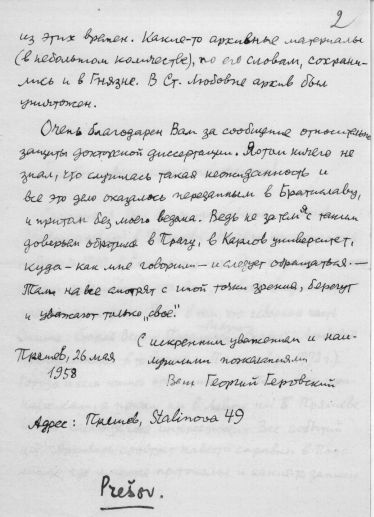 2
из этих времен. Какие-то архивные материалы
(в небольшом количестве), по его словам, сохрани-
лись и в Гнязне. В Ст. Любовне архив был
уничтожен.
Очень благодарен Вам за сообщение относительно
защиты докторской диссертации. Я о том ничего не
знал, что случилась такая неожиданность и
все это дело оказалось переданным в Братиславу,
и притом без моего ведома. Ведь не затем я с таким
доверьем обратился в Прагу, в Карлов университет,
куда - как мне говорили - и следует обращаться. -
Там на все смотрят с иной точки зрения, берегут
и уважают только „свое".
С искренним уважением и наи-
лучшими пожеланиями
Прешов, 26 мая
1958
Ваш Георгий Геровский
Адрес: Прешов, Stalinova 49
Prešov.